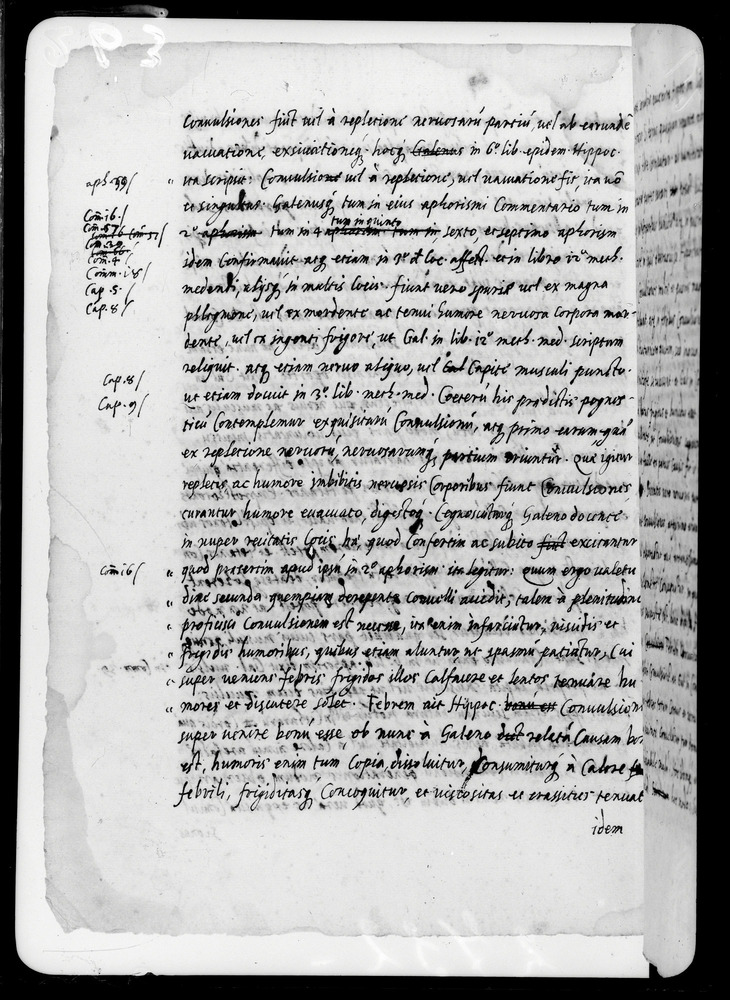 Convulsiones fiūt vel à repletione nervosarū partiū, vel ab earundē
vacuatione, exsiccationeq́; hocq́; Galenus in 6º lib. epidem. Hippoc.
aph. 39/ " ita scripsit: Convulsiones vel à repletione, vel vacuatione fit, ita vō
Com̄ 16./ et singultus. Galenusq́; tum in eius aphorismi Commentario tum in
2º aphorism tum in 4 aphorism tum in tum in quinto sexto et septimo aphorism
idem Confirmavit atq́; etiam in de loc. affect. et in libro 12º meth.
Com̄. 4/
Comm. 18/ medendi, alijsq́; in multis locis. fiunt vero spuriæ vel ex magna
Cap. 5./
Cap. 8/ phlegmone, vel ex mordente ac tenui humore nervosa corpora mor-
dente, vel ex ingenti frigore, ut Gal. in lib. 12º meth. med. scriptum
reliquit. atq́; etiam nervo aliquo, vel Capite musculi puncto.
Cap. 8/
Cap. 9/ ut etiam docuit in 3º. lib. meth. med. Cœterū his prædictis prognos-
ticū Contemplemur exquisitarū Convulsionū, atq́; primo earum quæ
ex repletione nervorū, nervosarumq́; partium oriuntur. Quæ igitur
repletis ac humore imbibitis nervosis Corporibus fiunt Convulsiones
curantur humore evacuato, digestoq́. Cognoscunturq́; Galeno docente
in nuper recitatis locis hâ, quod Confertim ac subito fiūt excitantur
Com̄ 16/ " quod præsertim apud ipsū in 2º. aphorism. ita legitur: quum ergo valetu
" dine secunda quempiam derepente Convelli accidit, talem à plenitudine
" proficisci Convulsionem est necesse, ita enim infarciuntur, viscidis et
" frigidis humoribus, quibus etiam aluntur, ut spasmū patiantur, Cui
" super veniens febris frigidos illos Calfacere et lentos tenuare hu
" mores et discutere solet. Febrem ait Hippoc. bonū est Convulsioni
super venire bonū esse ob nunc à Galeno dict relatā Causam bon
est, humoris enim tum Copia dissolvitur, Consumiturq́; à Calore
febrili, frigiditasq́; Concoquitur, et viscositas et crassities tenuat
idem